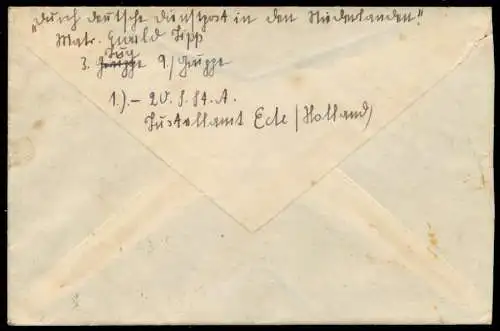 "Durch deutsche Dienstpost in den Niederlanden"
Matr. Gerold Tipp
Zug
3. Gruppe 9./Gruppe
1.)-20. S.St.A.
Zustellamt Ede/Holland/